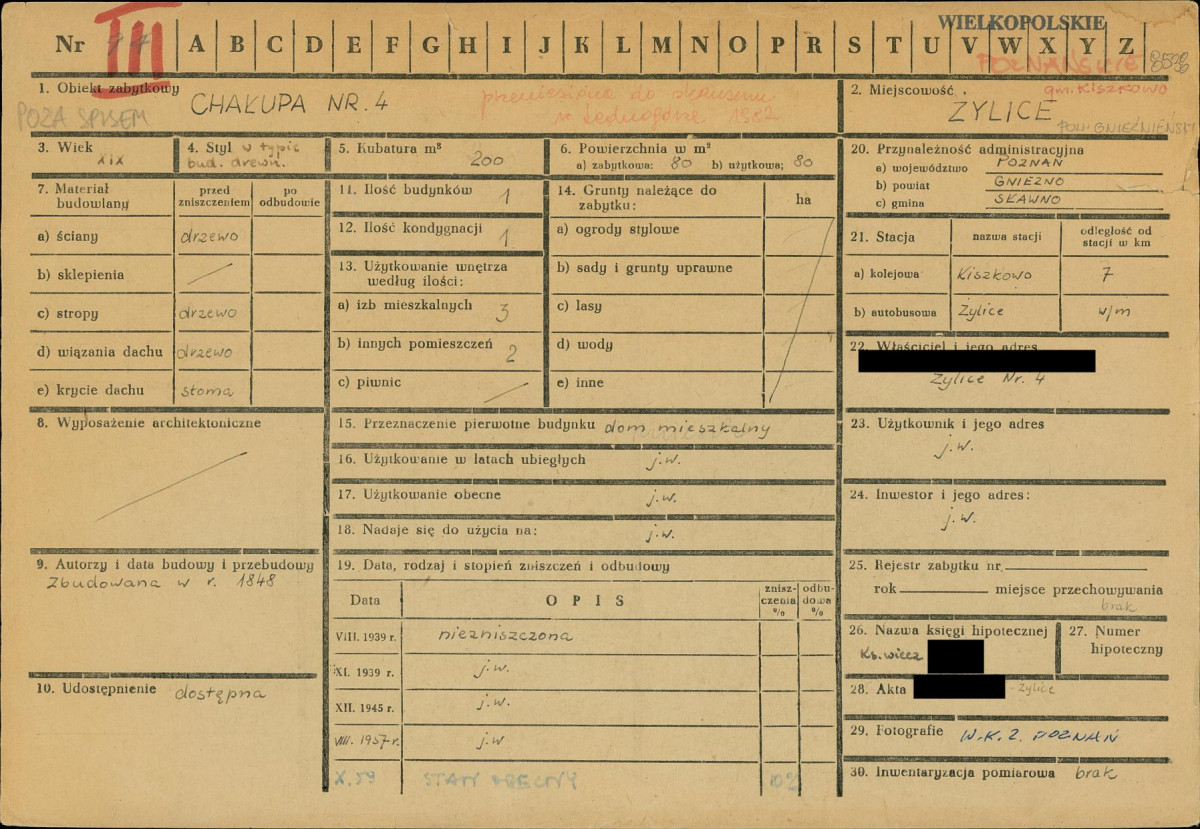 WIELKOPOLSKIE
Nr III A B C D E F G H I J K L M N O P R S T U V W X Y Z
POZNAŃSKIE
1. Obiekt zabytkowy
CHAŁUPA NR. 4
POZA SPISEM
przeniesiona do skansenu
w Lednogórze 1982
2. Miejscowość
gm. Kiszkowo
ŻYLICE
POW. GNIEŹNIEŃSKI
3. Wiek
XIX
4. Styl w typie
bud. drewn.
5. Kubatura m³
200
6. Powierzchnia w m²
a) zabytkowa: 80 b) użytkowa: 80
20. Przynależność administracyjna
a) województwo POZNAŃ
b) powiat GNIEZNO
c) gmina SŁAWNO
7. Materiał budowlany
przed zniszczeniem
po odbudowie
a) ściany drzewo
b) sklepienia
c) stropy drzewo
d) wiązania dachu drzewo
e) krycie dachu słoma
11. Ilość budynków 1
12. Ilość kondygnacji 1
13. Użytkowanie wnętrza
według ilości:
a) izb mieszkalnych 3
b) innych pomieszczeń 2
c) piwnic
14. Grunty należące do
zabytku: ha
a) ogrody stylowe
b) sady i grunty uprawne
c) lasy
d) wody
e) inne
21. Stacja nazwa stacji odległość od
stacji w km
a) kolejowa Kiszkowo 7
b) autobusowa Żylice w/m
22. Właściciel i jego adres
Żylice Nr. 4
8. Wyposażenie architektoniczne
15. Przeznaczenie pierwotne budynku dom mieszkalny
16. Użytkowanie w latach ubiegłych j.w.
17. Użytkowanie obecne j.w.
18. Nadaje się do użycia na: j.w.
23. Użytkownik i jego adres
j.w.
24. Inwestor i jego adres:
j.w.
9. Autorzy i data budowy i przebudowy
Zbudowana w r. 1848
10. Udostępnienie dostępna
19. Data, rodzaj i stopień zniszczeń i odbudowy
Data OPIS znisz-
czenia
% odbu-
dowa
%
VIII. 1939 r. niezniszczona
XI. 1939 r. j.w.
XII. 1945 r. j.w.
VIII. 1957 r. j.w
X.59 STAN OBECNY
25. Rejestr zabytku nr.
rok miejsce przechowywania
brak
26. Nazwa księgi hipotecznej
Ks. wiecz
27. Numer
hipoteczny
28. Akta Żylice
29. Fotografie W.K.Z. POZNAŃ
30. Inwentaryzacja pomiarowa brak